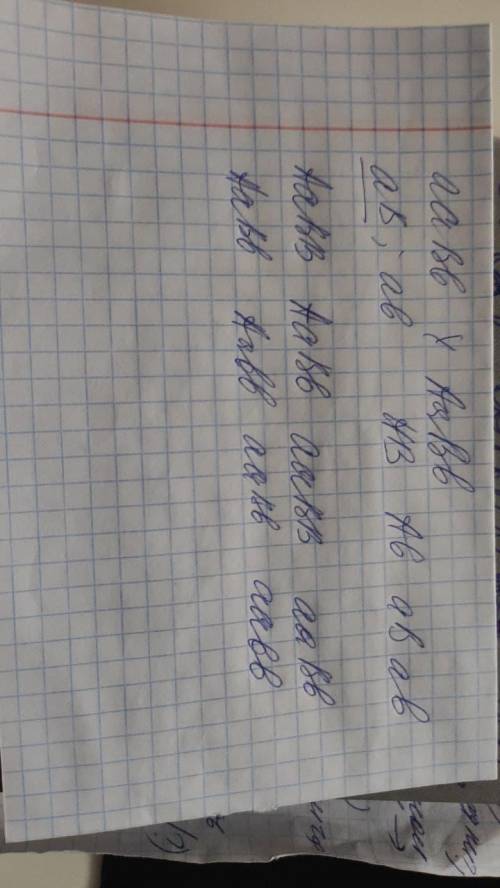 aaBb x AaBb
aB, ab AB Ab aB ab
AaBB AaBb aaBB aaBb
AaBb Aabb aaBb aabb